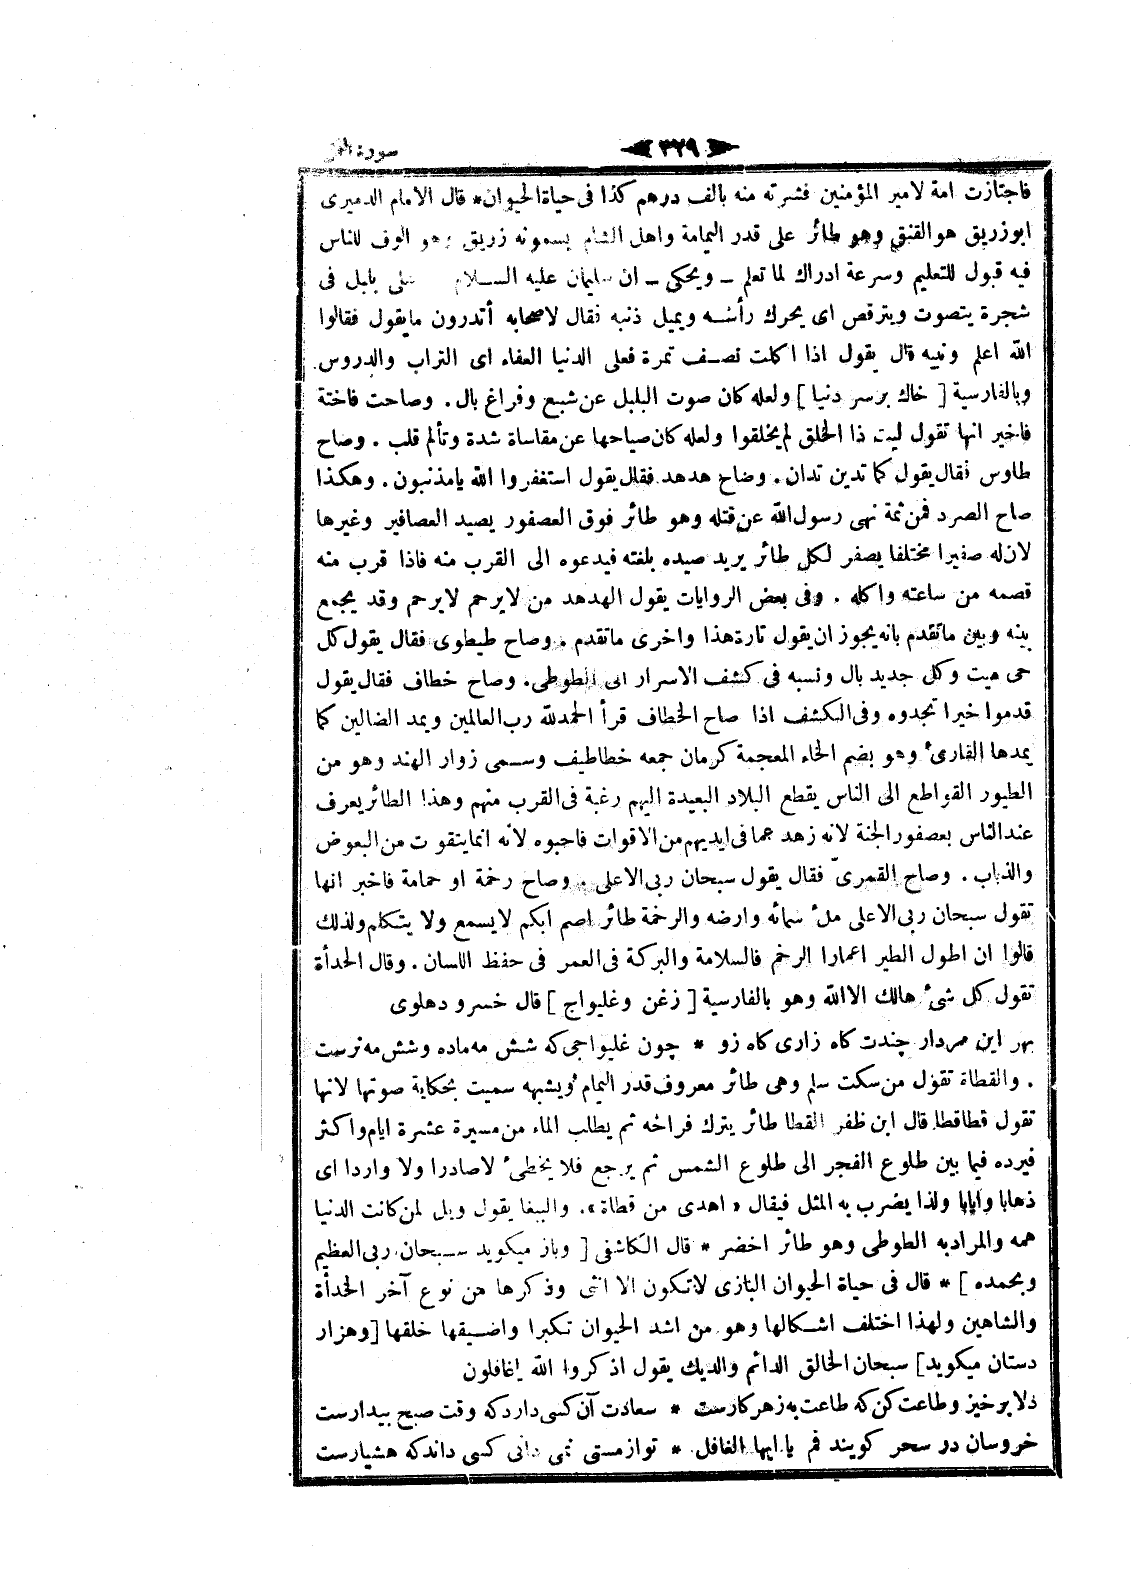 سورة النمل
٣٢٩
فاجتازت امة لامير المؤمنين فشرته منه بالف درهم كذا فى حياة الحيوان* قال الامام الدميرى
ابوزريق هوالقيق وهو طائر على قدر اليمامة واهل الشام يسمونه زريق وهو الوف للناس
فيه قبول للتعليم وسرعة ادراك لما تعلم ـ ويحكى ـ ان سليمان عليه السـلام على بلبل فى
شجرة يتصوت ويترقص اى يحرك رأسه ويميل ذنبه فقال لاصحابه أتدرون مايقول فقالوا
الله اعلم ونبيه قال يقول اذا اكلت نصـف تمرة فعلى الدنيا العفاء اى التراب والدروس
وبالفارسية [ خاك برسر دنيا ] ولعله كان صوت البلبل عن شبع وفراغ بال . وصاحت فاختة
فاخبر انها تقول ليت ذا الخلق لم يخلقوا ولعله كان صياحها عن مقاساة شدة وتألم قلب . وصاح
طاوس فقال يقول كما تدين تدان . وصاح هدهد فقال يقول استغفروا الله يامذنبون . وهكذا
صاح الصرد فمن ثمة نهى رسول الله عن قتله وهو طائر فوق العصفور يصيد العصافير وغيرها
لان له صفيرا مختلفا يصفر لكل طائر يريد صيده بلغته فيدعوه الى القرب منه فاذا قرب منه
قصمه من ساعته واكله . وفى بعض الروايات يقول الهدهد من لايرحم لايرحم وقد يجمع
بينه وبين ماتقدم بانه يجوز ان يقول تارة هذا واخرى ماتقدم . وصاح طيطوى فقال يقول كل
حى ميت وكل جديد بال ونسبه فى كشف الاسرار الى الطوطى . وصاح خطاف فقال يقول
قدموا خيرا تجدوه وفى الكشف اذا صاح الخطاف قرأ الحمدلله رب العالمين ويمد الضالين كما
يمدها القارئ وهو بضم الخاء المعجمة كرمان جمعه خطاطيف وسـمى زوار الهند وهو من
الطيور القواطع الى الناس يقطع البلاد البعيدة اليهم رغبة فى القرب منهم وهذا الطائر يعرف
عند الناس بعصفور الجنة لانه زهد عما فى ايديهم من الاقوات فاحبوه لانه انما يتقوت من البعوض
والذباب . وصاح القمرىّ فقال يقول سبحان ربى الاعلى . وصاح رخمة او حمامة فاخبر انها
تقول سبحان ربى الاعلى ملء سمائه وارضه والرخمة طائر اصم ابكم لايسمع ولا يتكلم ولذلك
قالوا ان اطول الطير اعمارا الرخم فالسلامة والبركة فى العمر فى حفظ اللسان . وقال الحدأة
تقول كل شئ هالك الا الله وهو بالفارسية [ زغن وغليواج ] قال خسرو دهلوى
بهر اين مردار چندت كاه زارى كاه زو * چون غليواجى كه شش مه ماده وشش مه نرست
. والقطاة تقول من سكت سلم وهى طائر معروف قدر اليمام ويشبهه سميت بحكاية صوتها لانها
تقول قطاقطا قال ابن ظفر القطا طائر يترك فراخه ثم يطلب الماء من مسيرة عشرة ايام واكثر
فيرده فيما بين طلوع الفجر الى طلوع الشمس ثم يرجع فلا يخطئ لاصادرا ولا واردا اى
ذهابا وايابا ولذا يضرب به المثل فيقال « اهدى من قطاة » . والببغا يقول ويل لمن كانت الدنيا
همه والمراد به الطوطى وهو طائر اخضر * قال الكاشفى [ وباز ميكويد سـبحان ربى العظيم
وبحمده ] * قال فى حياة الحيوان البازى لاتكون الا انثى وذكرها من نوع آخر الحدأة
والشاهين ولهذا اختلف اشكالها وهو من اشد الحيوان تكبرا واضيقها خلقها [ وهزار
دستان ميكويد ] سبحان الخالق الدائم والديك يقول اذكروا الله ياغافلون
دلا برخيز وطاعت كن كه طاعت به زهر كارست * سعادت آن كسى دارد كه وقت صبح بيدارست
خروسان در سحر كويند قم يا ايها الغافل * تو از مستى نمى دانى كسى داند كه هشيارست